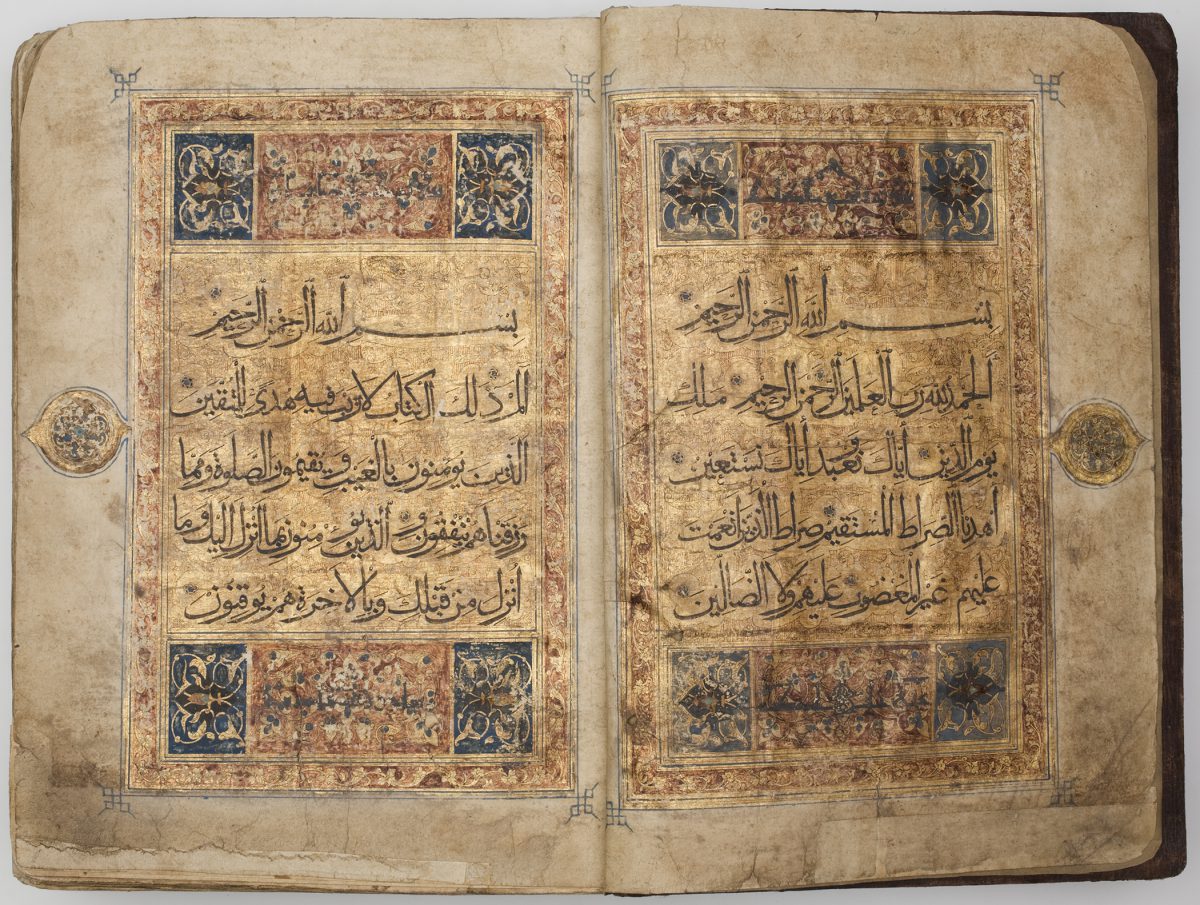 بِسْمِ اللَّهِ الرَّحْمٰنِ الرَّحِيمِ
اَلْحَمْدُ لِلَّهِ رَبِّ الْعٰلَمِينَ الرَّحْمٰنِ الرَّحِيمِ مٰلِكِ
يَوْمِ الدِّينِ اِيَّاكَ نَعْبُدُ وَاِيَّاكَ نَسْتَعِينُ
اِهْدِنَا الصِّرَاطَ الْمُسْتَقِيمَ صِرَاطَ الَّذِينَ اَنْعَمْتَ
عَلَيْهِمْ غَيْرِ الْمَغْضُوبِ عَلَيْهِمْ وَلَا الضَّالِّينَ
بِسْمِ اللَّهِ الرَّحْمٰنِ الرَّحِيمِ
الم ذٰلِكَ الْكِتَابُ لَا رَيْبَ فِيهِ هُدًى لِلْمُتَّقِينَ
الَّذِينَ يُومِنُونَ بِالْغَيْبِ وَيُقِيمُونَ الصَّلٰوةَ وَمِمَّا
رَزَقْنَاهُمْ يُنْفِقُونَ وَالَّذِينَ يُومِنُونَ بِمَا اُنْزِلَ اِلَيْكَ وَمَا
اُنْزِلَ مِنْ قَبْلِكَ وَبِالْاٰخِرَةِ هُمْ يُوقِنُونَ